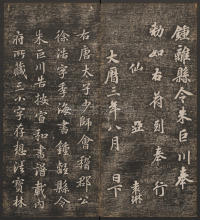 鍾離縣令朱巨川奉
勅如右符到奉行
仙
大曆三年八月 日下
右唐太子少師會稽郡公
徐浩字季海書鍾離縣令
朱巨川告按宣和書譜載內
府所藏三小字存想法寶林